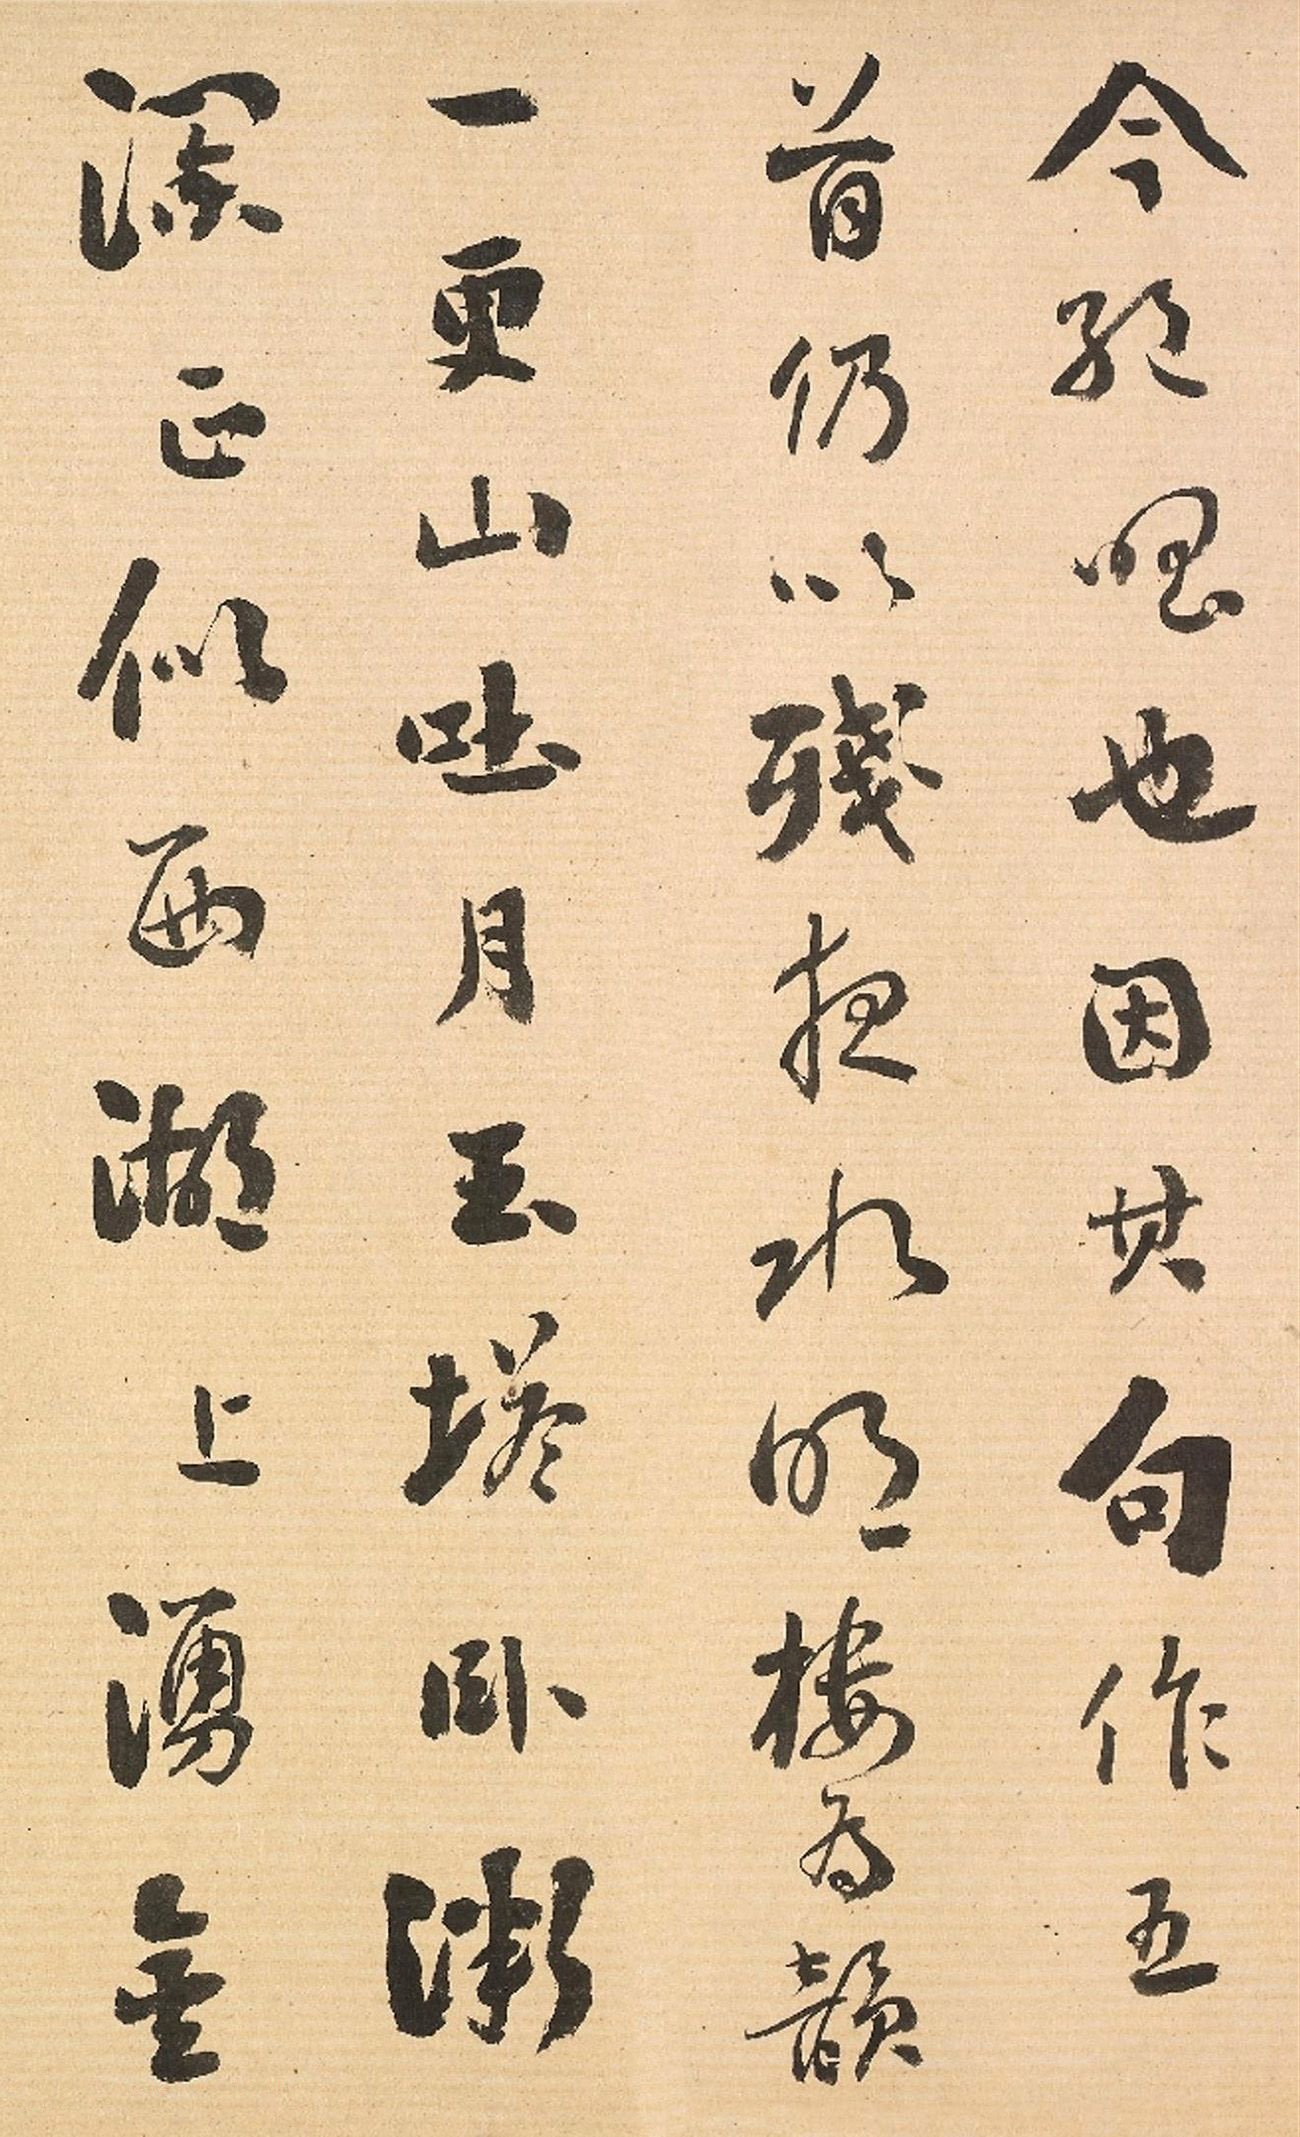 今絕唱也因其句作五
首仍以殘夜水明樓為韻
一更山吐月玉塔臥微
瀾正似西湖上湧金